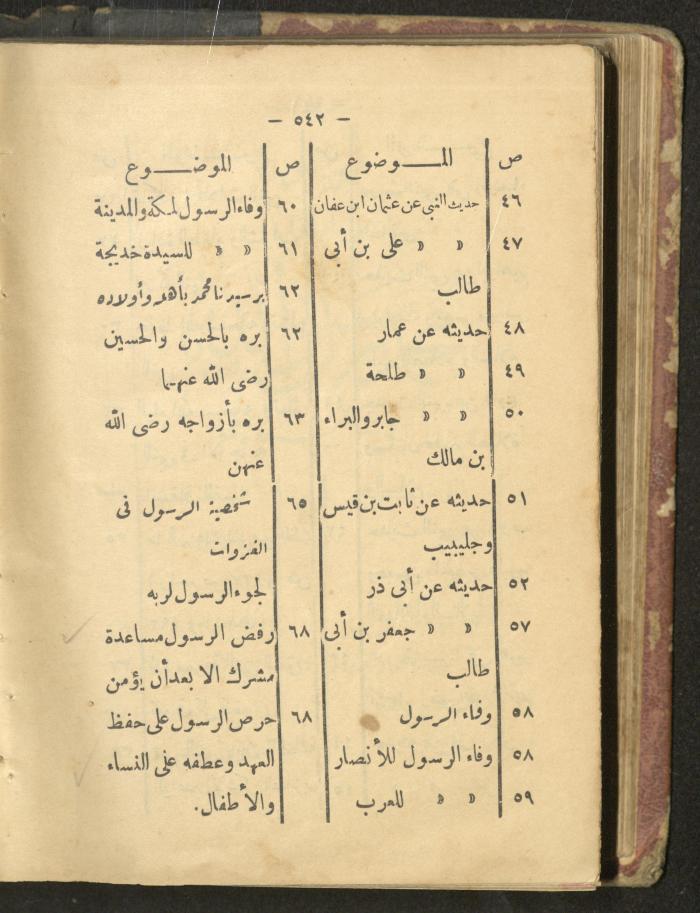 — ٥٤٢ —
ص المـــــوضوع
٤٦ حديث النبي عن عثمان ابن عفان
٤٧ » » على بن أبى
طالب
٤٨ حديثه عن عمار
٤٩ » » طلحة
٥٠ » » جابر والبراء
بن مالك
٥١ حديثه عن ثابت بن قيس
وجليبيب
٥٢ حديثه عن أبى ذر
٥٧ » » جعفر بن أبى
طالب
٥٨ وفاء الرسول
٥٨ وفاء الرسول للأنصار
٥٩ » » للعرب
ص الموضـــــوع
٦٠ وفاء الرسول لمكة والمدينة
٦١ » » للسيدة خديجة
٦٢ بر سيدنا محمد بأهله وأولاده
٦٢ بره بالحسن والحسين
رضى الله عنهما
٦٣ بره بأزواجه رضى الله
عنهن
٦٥ شخصية الرسول فى
الغزوات
لجوء الرسول لربه
٦٨ رفض الرسول مساعدة
مشرك الا بعد أن يؤمن
٦٨ حرص الرسول على حفظ
العهد وعطفه على النساء
والأطفال.